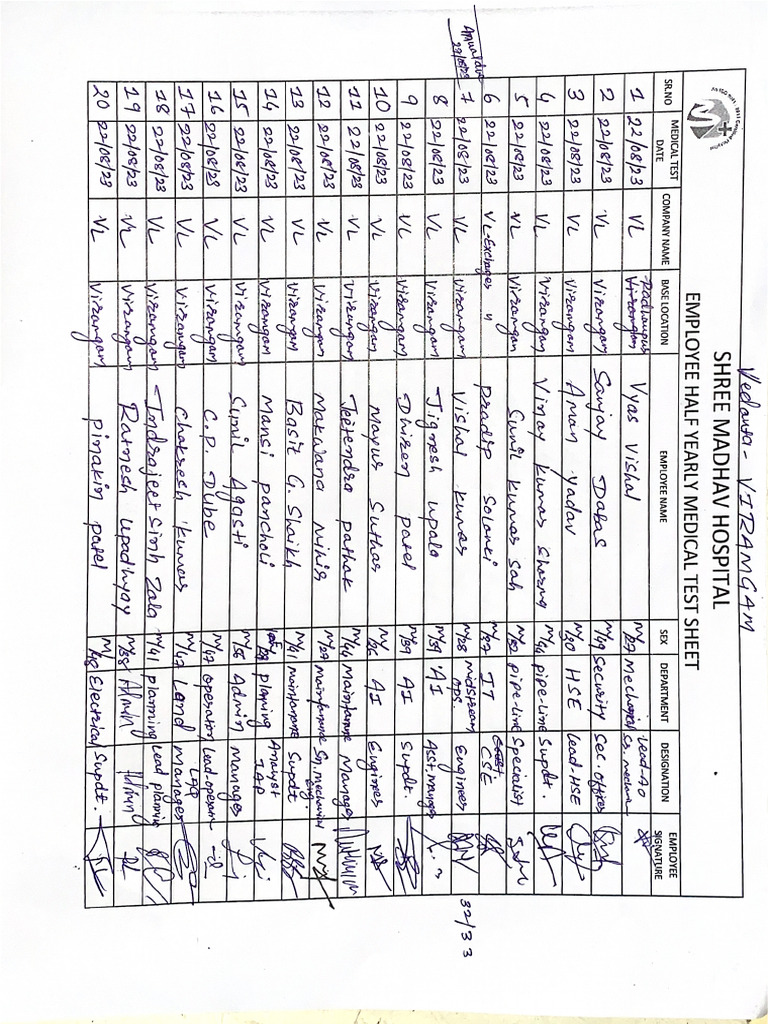 Vedanta - VIRAMGAM
SHREE MADHAV HOSPITAL
EMPLOYEE HALF YEARLY MEDICAL TEST SHEET
SR.NO MEDICAL TEST DATE COMPANY NAME BASE LOCATION EMPLOYEE NAME SEX DEPARTMENT DESIGNATION EMPLOYEE SIGNATURE
1 22/08/23 VL Viramgam Vyas Vishal M/27 Mechanical
2 22/08/23 VL Viramgam Sanjay M/49 Security Sec. officer
3 22/08/23 VL Viramgam Aman Yadav M/30 HSE Lead-HSE
4 22/08/23 VL Viramgam Vinay Kumar Sharma M/44 pipe-line Supdt.
5 22/08/23 VL Viramgam Sunil Kumar Sah M/32 pipe-line Specialist
6 22/08/23 VL-Exchanges " Pradip Solanki M/37 IT CSE
7 22/08/23 VL Viramgam Vishal Kumar M/28 midstream ops. Engineer
8 22/08/23 VL Viramgam Jignesh Upala M/39 AI Asst. manager
9 22/08/23 VL Viramgam Dhiren patel M/39 AI Supdt.
10 22/08/23 VL Viramgam Mayur Suthar M/26 AI Engineer
11 22/08/23 VL Viramgam Jeetendra pathak M/44 Maintenance Manager
12 22/08/23 VL Viramgam Makwana Mihir M/29 maintenance Sn. mechanical Eng.
13 22/08/23 VL Viramgam Basit G. Shaikh M/41 maintenance Supdt
14 22/08/23 VL Viramgam Mansi pancholi planning Analyst
15 22/08/23 VL Viramgam Sunil Agasti M/56 Admin Manager
16 22/08/23 VL Viramgam C.P. Dube M/47 operator Lead-operator
17 22/08/23 VL Viramgam Chakresh Kumar M/47 Land Manager
18 22/08/23 VL Viramgam Indrajeetsinh Zala M/41 planning Lead planning
19 22/08/23 VL Viramgam Ratnesh Upadhyay M/38 Admin
20 22/08/23 VL Viramgam pinakin patel M/48 Electrical Supdt.
23/08/23
32/33